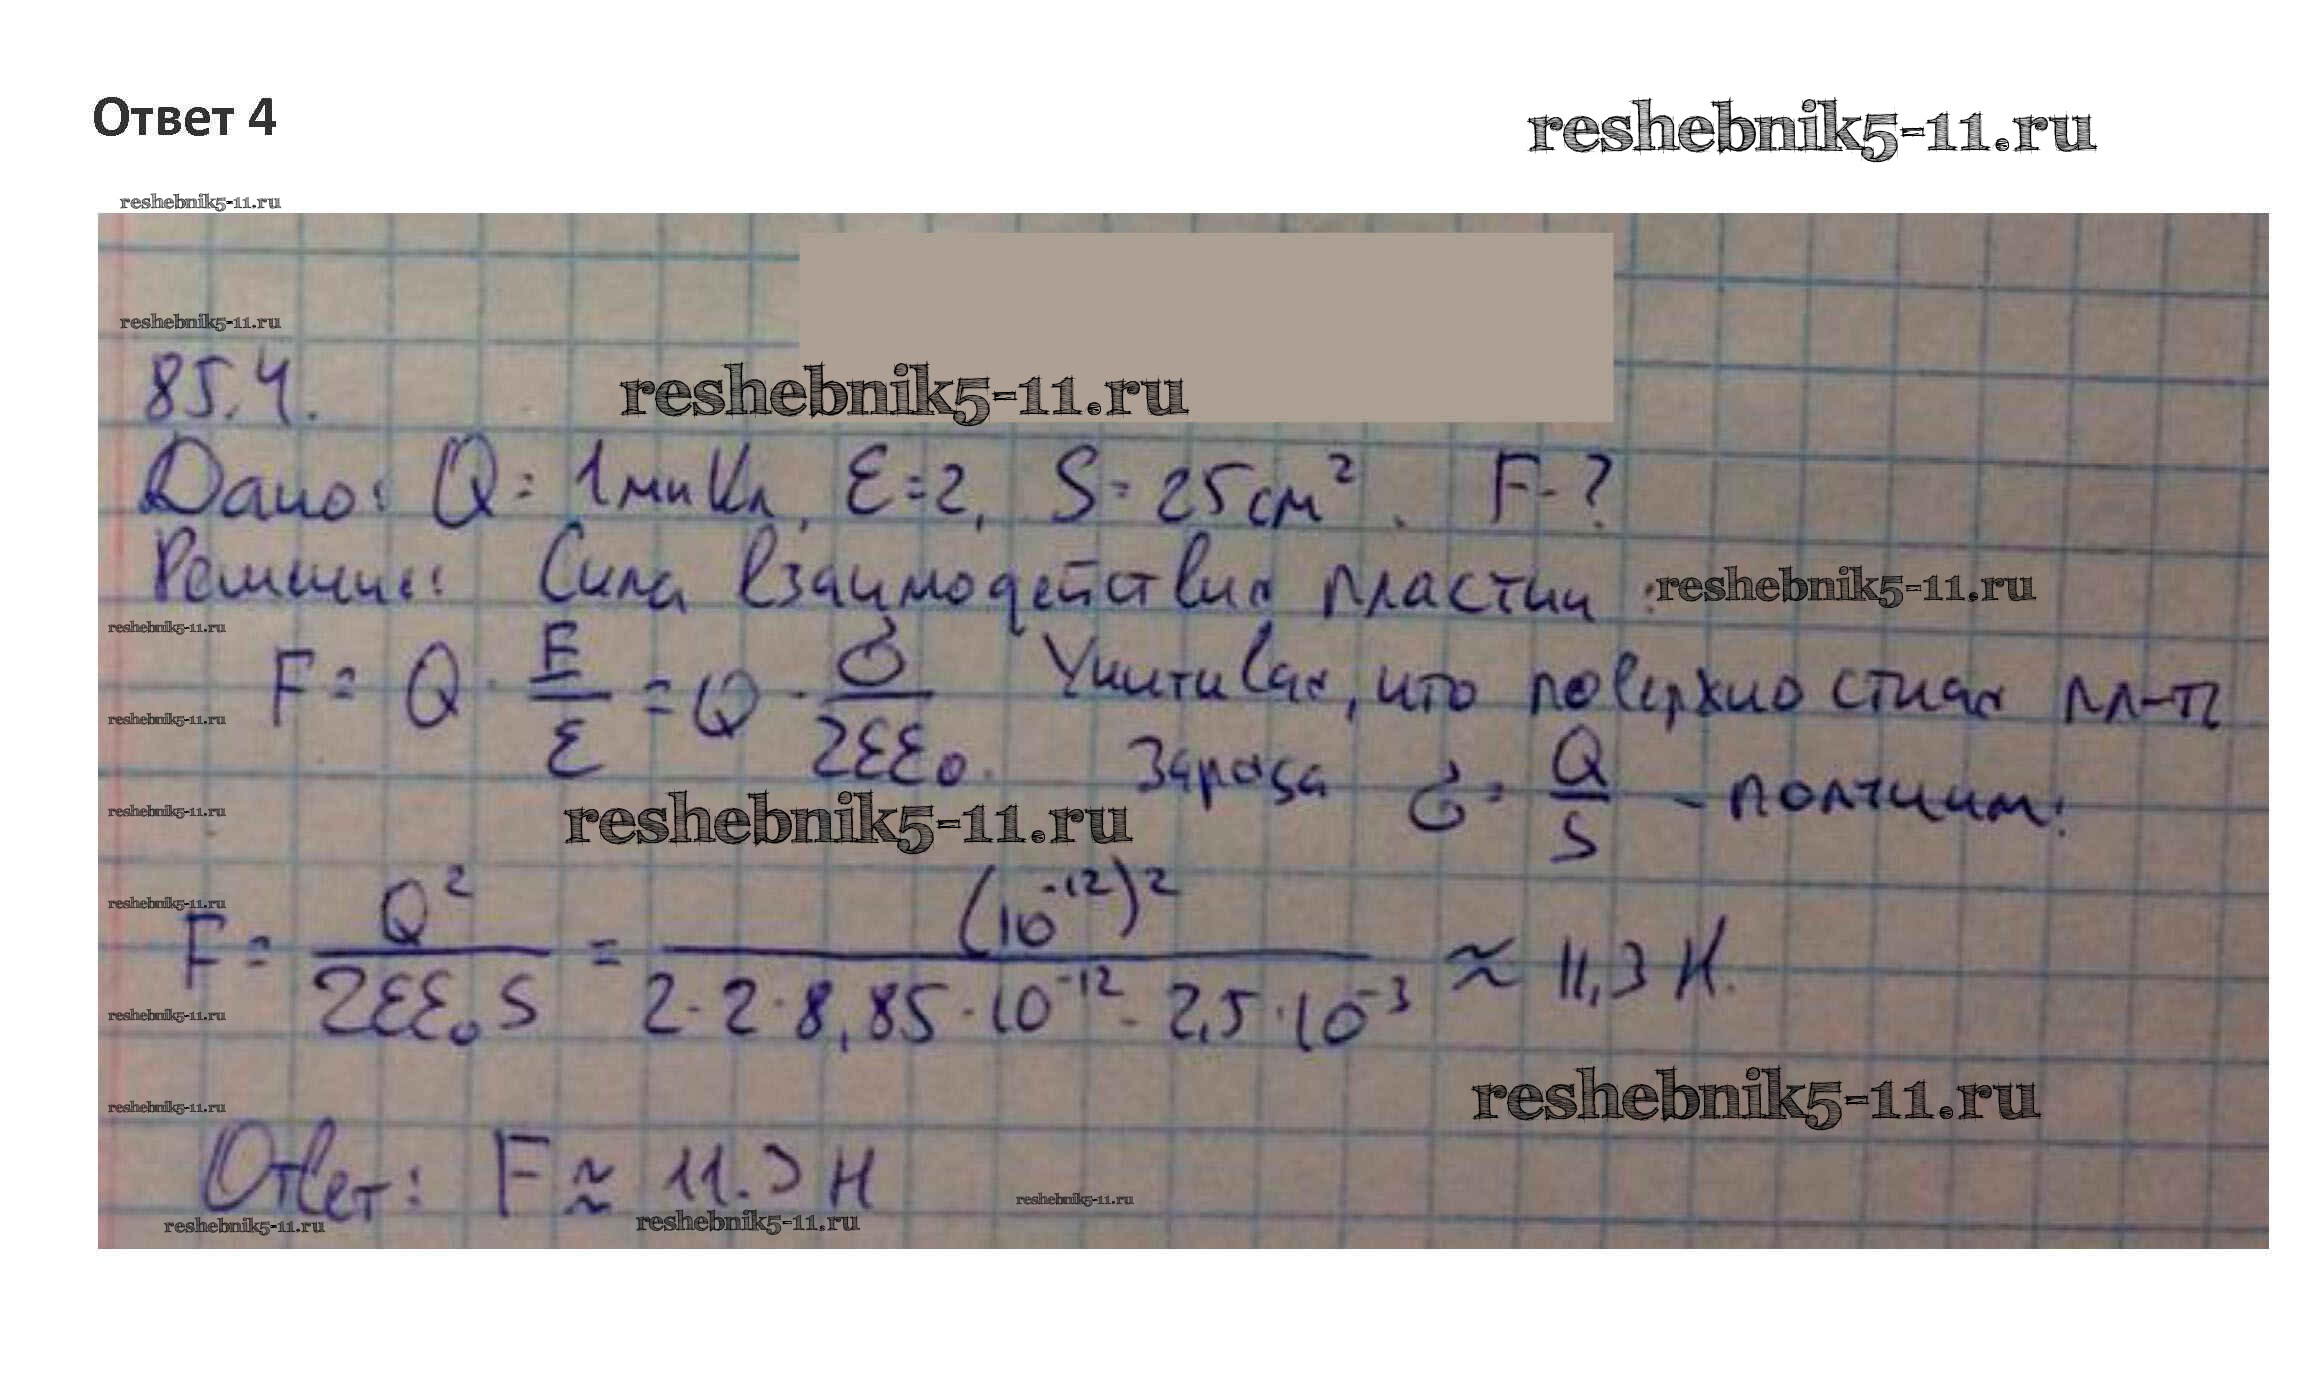 Ответ 4
reshebnik5-11.ru
reshebnik5-11.ru
reshebnik5-11.ru
85.4.
reshebnik5-11.ru
Дано: Q = 1 мкКл, ε = 2, S = 25 см². F - ?
Решение: Сила взаимодействия пластин :
reshebnik5-11.ru
reshebnik5-11.ru
F = Q · E/ε = Q · σ/2εε₀. Учитывая, что поверхностная пл-ть
reshebnik5-11.ru
заряда σ = Q/S - получим:
reshebnik5-11.ru
reshebnik5-11.ru
reshebnik5-11.ru
F = Q²/2εε₀S = (10⁻¹²)²/2·2·8,85·10⁻¹²·2,5·10⁻³ ≈ 11,3 Н.
reshebnik5-11.ru
reshebnik5-11.ru
reshebnik5-11.ru
Ответ: F ≈ 11.3 Н
reshebnik5-11.ru
reshebnik5-11.ru
reshebnik5-11.ru